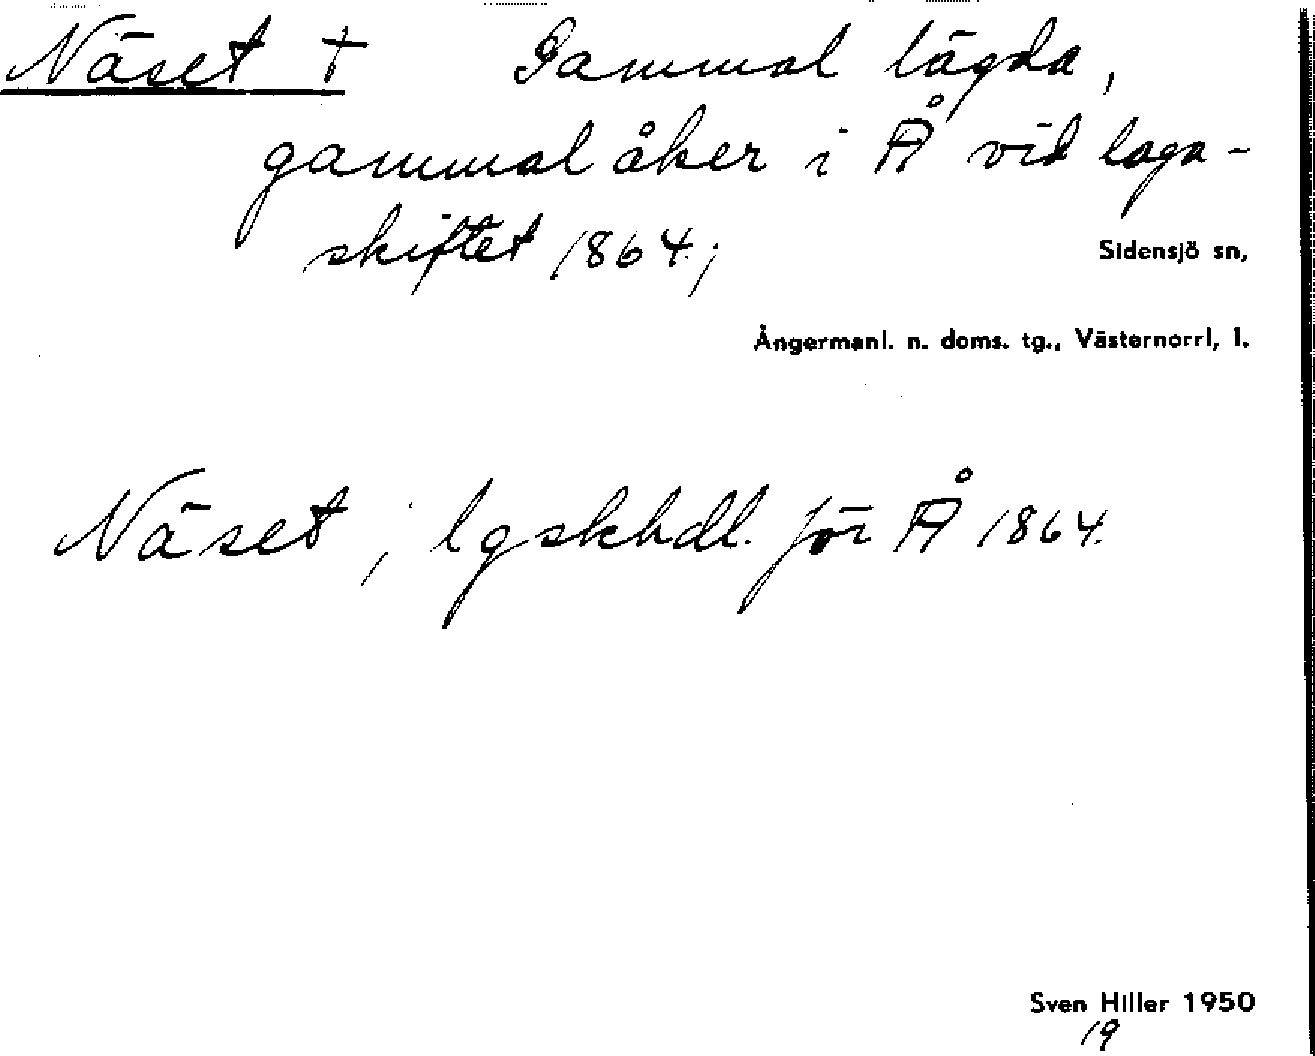 Näset † Gammal lägda,
gammal åker i Å vid laga-
skiftet 1864;
Sidensjö sn,
Ångermanl. n. doms. tg., Västernorrl, l.
Näset; lgskhdl. för Å 1864.
Sven Hiller 1950
19